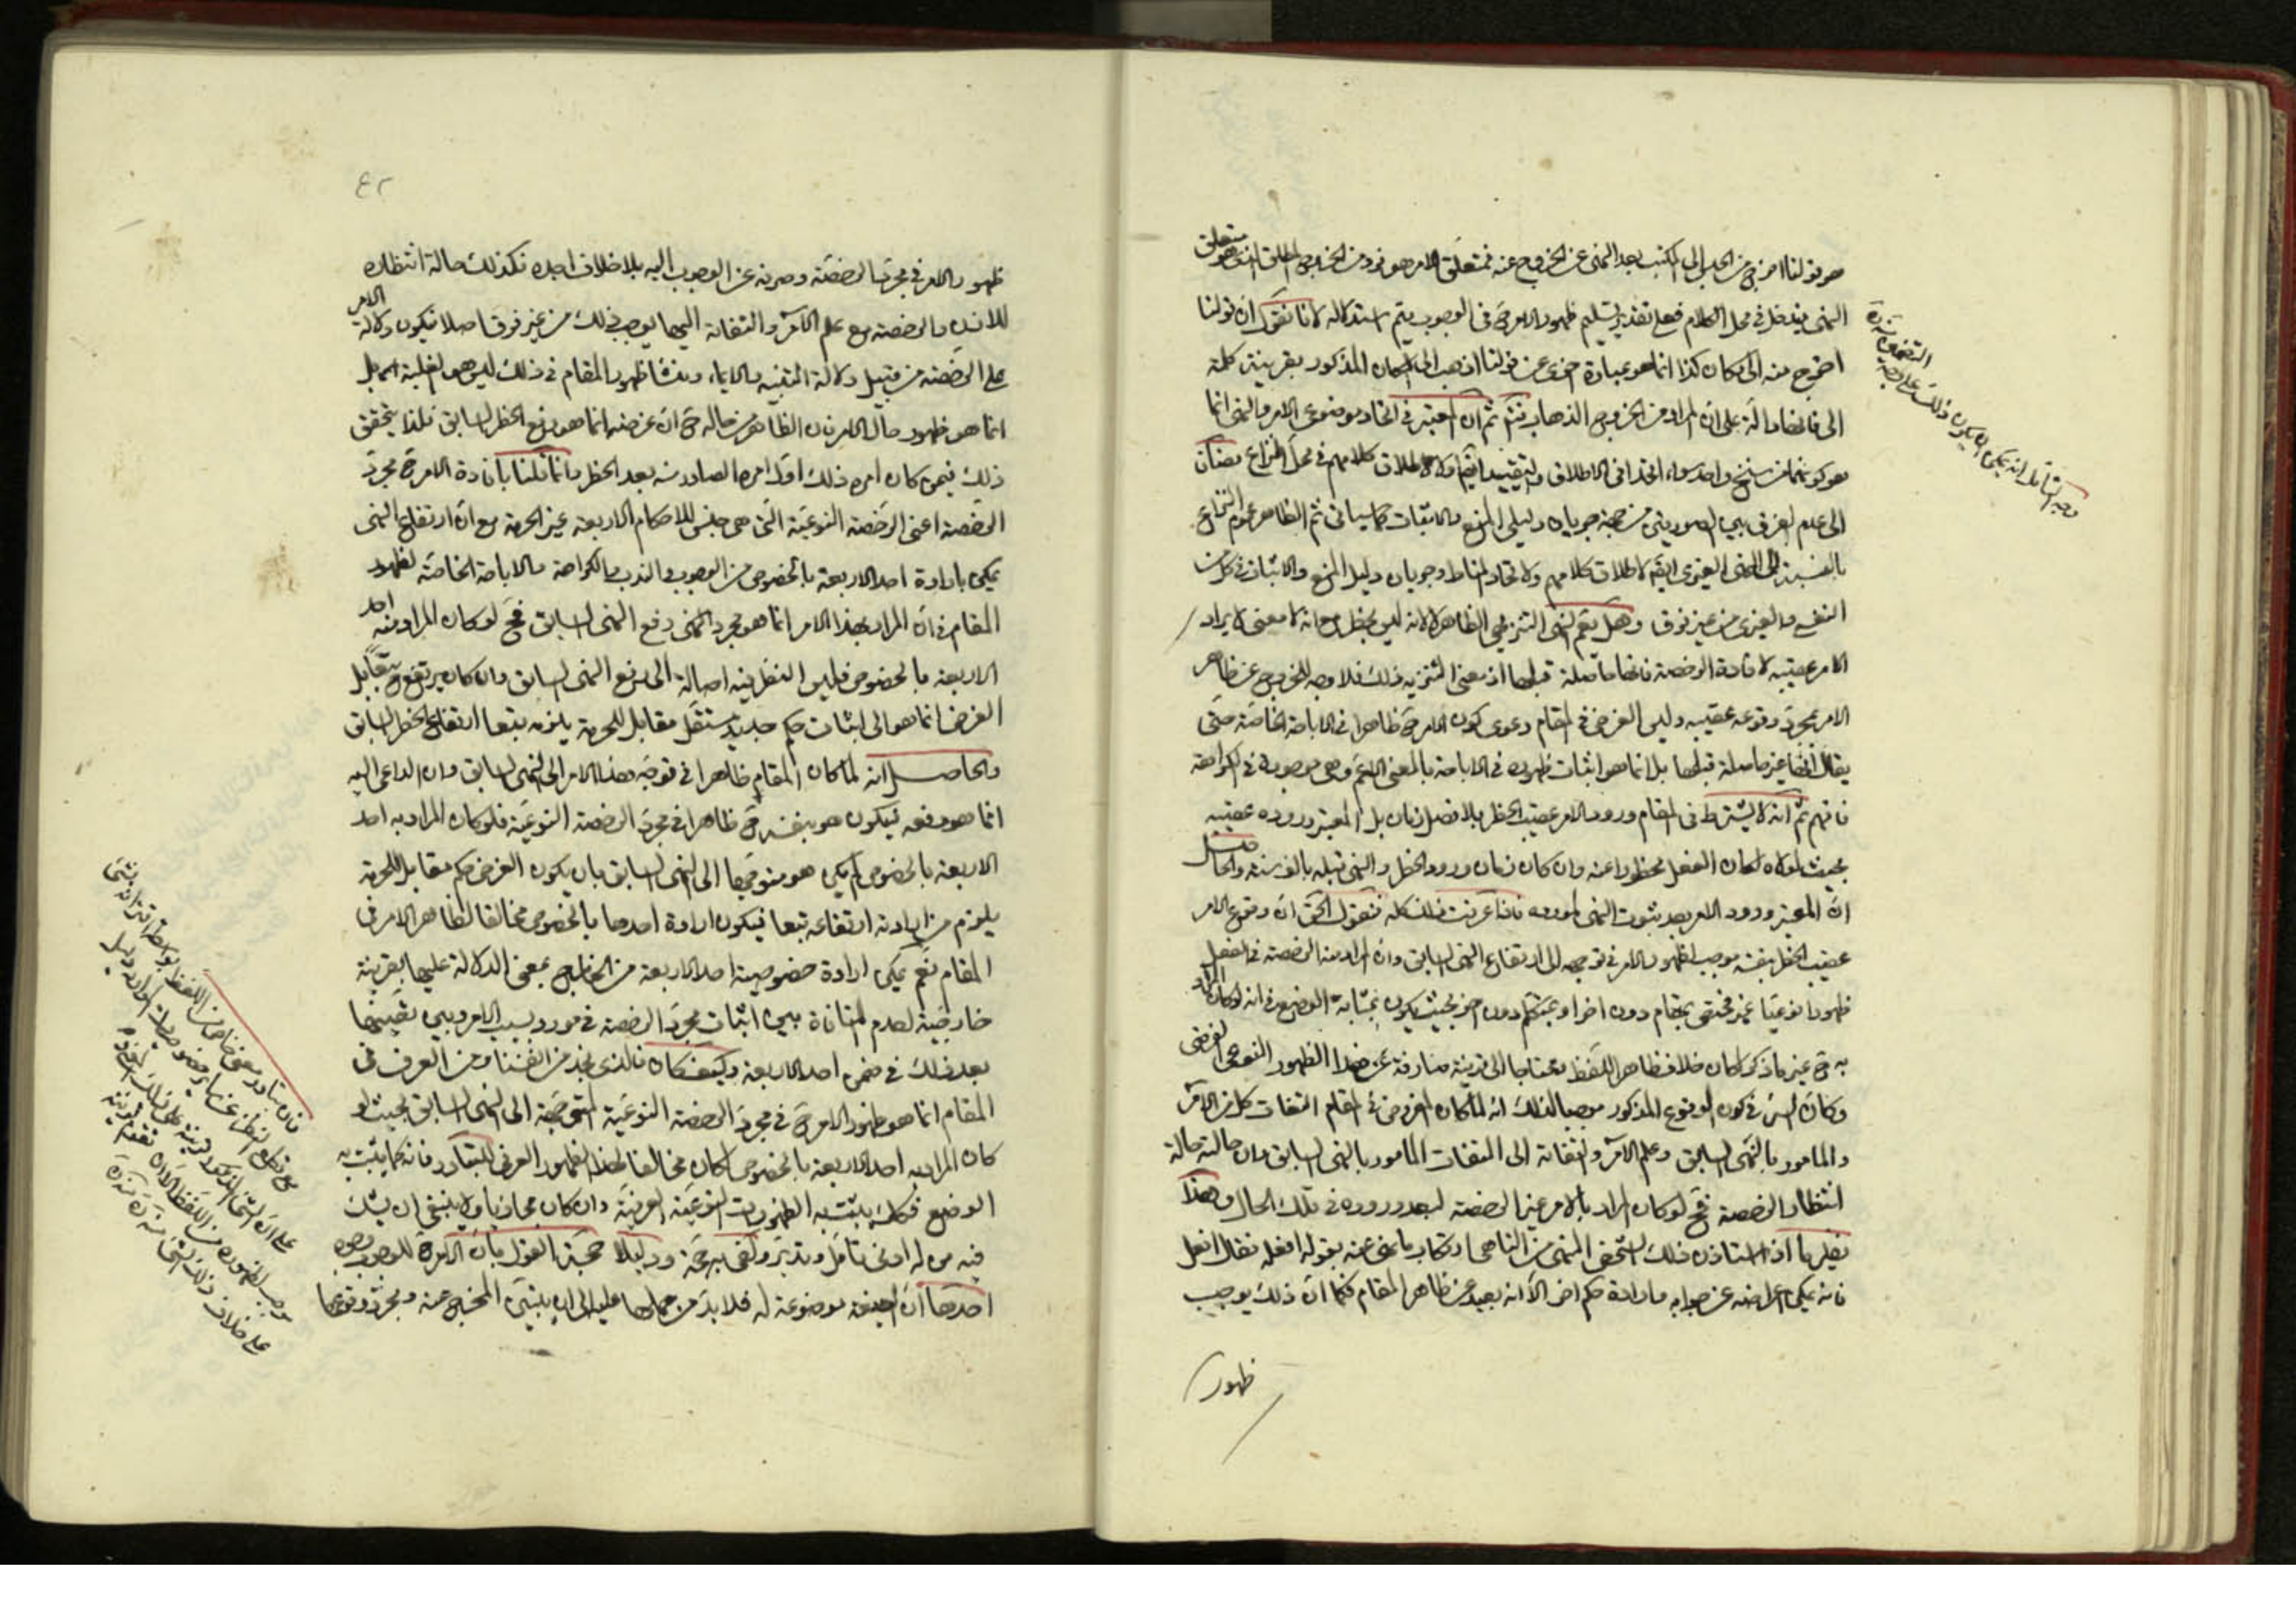 هو قولنا اخرج من الحبس إلى المكتب بعد النهى عن الخروج عنه فمتعلق الامر هو فرد من الخروج المطلق الذى هو متعلق
النهى فيدخل فى محل الكلام فعلى تقدير تسليم ظهور الامر ح فى الوجوب يتم استدلاله لانا نقول ان قولنا
اخرج منه الى مكان كذا انما هو عبارة اخرى عن قولنا اذهب الى المكان المذكور بقرينة كلمة
الى فانها دالة على ان المراد من الخروج الذهاب ثم ان المعتبر فى اتحاد موضوعى الامر والنهى انما
هو كونهما من سنخ واحد سواء اتحدا فى الاطلاق والتقييد ام لا لاطلاق كلامهم فى محل النزاع مضافا
الى عدم الفرق بين الصورتين من جهة جريان دليلى المنع والاثبات كما سيأتى ثم الظاهر عموم النزاع
بالنسبة الى النهى الغيرى ايضا لاطلاق كلامهم ولاتحاد المناط وجريان دليل المنع والاثبات فى كل من
النفسى والغيرى من غير فرق وهل يعم النهى التنزيهى الظاهر لا لانه ليس بحظر مع انه لا معنى لايراد
الامر عقيبه لافادة الرخصة فانها حاصلة قبلها اذ معنى التنزيه ذلك فلا وجه للخروج عن ظاهر
الامر بمجرد وقوعه عقيبه وليس الغرض فى المقام دعوى كون الامر ح ظاهرا فى الاباحة الخاصة حتى
يقال انها غير حاصلة قبلها بل انما هو اثبات ظهوره فى الاباحة بالمعنى الاعم وهى موجودة فى الكراهة
فافهم ثم انه لا يشترط فى المقام ورود الامر عقيب الحظر بلا فصل زمان بل المعتبر وروده عقيبه
بحيث لولاه لكان الفعل محظورا عنه وان كان زمان ورود الحظر والنهى قبله بالف سنة والحاصل
ان المعتبر ورود الامر بعد ثبوت النهى لمورده فاذا عرفت ذلك كله فنقول الحق ان وقوع الامر
عقيب الحظر بنفسه موجب لظهور الامر فى توجهه الى ارتفاع النهى السابق وان المراد منه الرخصة فى الفعل
ظهورا نوعيا غير مختص بمقام دون اخر او بمتكلم دون اخر بحيث يكون بمثابة الوضع فى انه لو كان المراد
به ح غير ما ذكر لكان خلاف ظاهر اللفظ محتاجا الى قرينة صارفة عن هذا الظهور النوعى العرفى
وكان السر فى كون الوقوع المذكور موجبا لذلك انه لما كان المفروض فى المقام التفات كل من الآمر
والمامور بالنهى السابق وعلم الآمر والتفاته الى التفات المأمور بالنهى السابق وان حالته حالة
انتظار الرخصة فح لو كان المراد بالامر غير الرخصة لبعد وروده فى تلك الحال وهذا
نظير ما اذا استاذن ذلك الشخص المنهى من الناهى ارتكاب ما نهى عنه بقوله افعله فقال افعل
فانه يمكن اعراضه عن جوابه وارادة حكم اخر الا انه بعيد عن ظاهر المقام فكما ان ذلك يوجب
ظهور
وجه التأمل انه يمكن ان يكون ذلك على وجه التضمين منه ره
٤٢
ظهور الامر فى مجرد الرخصة وصرفه عن الوجوب اليه بلا خلاف اجده فكذلك حالة انتظاره
للاذن والرخصة مع علم الآمر والتفاته اليها يوجب ذلك من غير فرق اصلا فيكون دلالة الامر
على الرخصة من قبيل دلالة التنبيه والايماء ومنشأ ظهور المقام فى ذلك ليس هو الغلبة بل
انما هو ظهور حال الامر فان الظاهر من حاله ح ان غرضه انما هو رفع الحظر السابق فلذا يتحقق
ذلك فيمن كان امره ذلك اول امره الصادر منه بعد الحظر وانما قلنا بافادة الامر ح مجرد
الرخصة اعنى الرخصة النوعية التى هى جنس للاحكام الاربعة غير الحرمة مع ان ارتفاع النهى
يمكن بارادة احد الاربعة بالخصوص من الوجوب والندب والكراهة والاباحة الخاصة لظهور
المقام فى ان المراد بهذا الامر انما هو مجرد رفع النهى السابق فح لو كان المراد منه احد
الاربعة بالخصوص فليس النظر فيه اصالة الى رفع النهى السابق وان كان يرتفع ح بل
الغرض انما هو الى اثبات حكم جديد مستقل مقابل للحرمة يلزمه تبعا ارتفاع الحظر السابق
والحاصل انه لما كان المقام ظاهرا فى توجه هذا الامر الى النهى السابق وان الداعى اليه
انما هو رفعه فيكون هو بنفسه ح ظاهرا فى مجرد الرخصة النوعية فلو كان المراد به احد
الاربعة بالخصوص لم يكن هو متوجها الى النهى السابق بان يكون الغرض حكم مقابل للحرمة
يلزم من ارادته ارتفاعه تبعا فيكون ارادة احدها بالخصوص مخالفا لظاهر الامر فى
المقام نعم يمكن ارادة خصوصية احد الاربعة من الخارج بمعنى الدلالة عليها بقرينة
خارجية لعدم المنافاة بين اثبات مجرد الرخصة فى مورد بسبب الامر وبين تعيينها
بعد ذلك فى ضمن احد الاربعة وكيف كان فالذى نجد من انفسنا ومن العرف فى
المقام انما هو ظهور الامر ح فى مجرد الرخصة النوعية المتوجهة الى النهى السابق بحيث لو
كان المراد به احد الاربعة بالخصوص لكان مخالفا لهذا الظهور العرفى للتبادر فانه كما يثبت به
الوضع فكذلك يثبت به الظهورات النوعية العرفية وان كان مجازيا ولا ينبغى ان يشك
فيه من له ادنى تأمل وتدبر وكفى به حجة ودليلا حجة القول بان الامر ح للوجوب وجوه
احدها ان الصيغة موضوعة له فلا بد من حملها عليه الى ان يتبين المخرج عنه ومجرد وقوعها